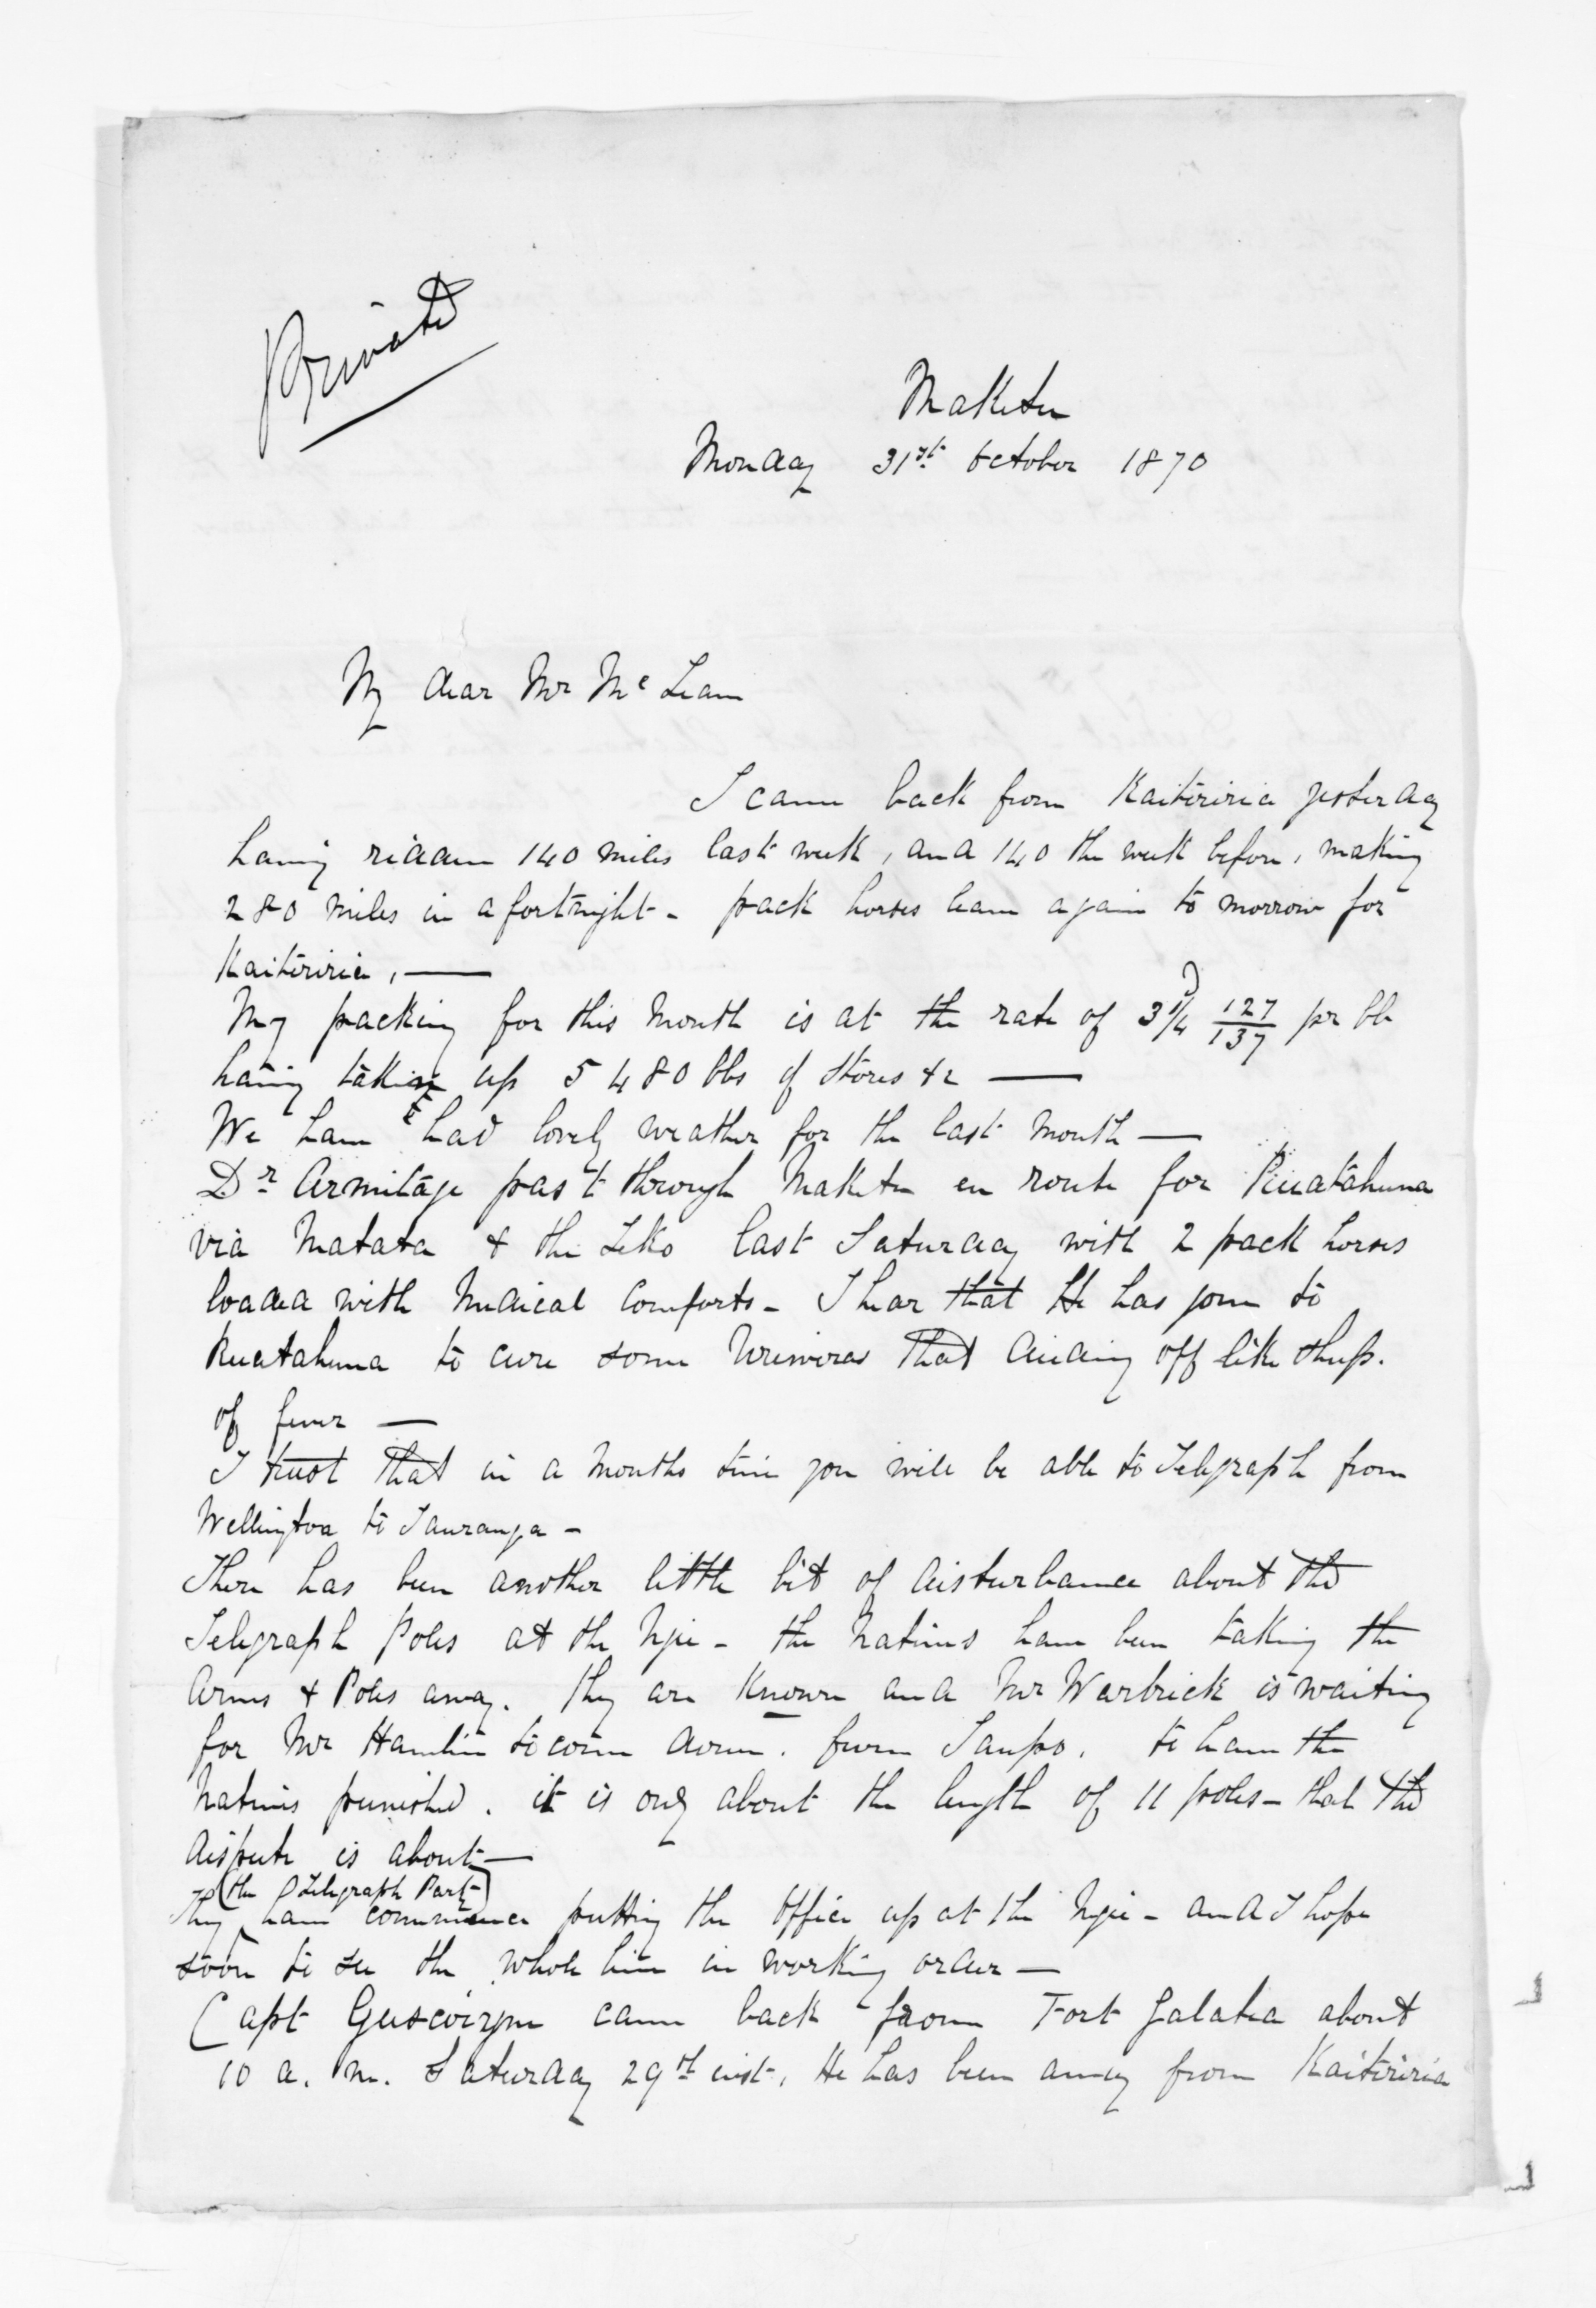 Private
Maketu
Monday 31st October 1870
My dear Mr McLean
I came back from Kaiteriria yesterday
having riddem 140 miles last week, and 140 the week before, making
280 miles in a fortnight - pack horses leave again to morrow for
Kaiteriria, —
My packing for this Month is at the rate of 3d 1/4 127/137 pr lb
having taken up 5480 lbs of Stores &c —
We have had lovely weather for the last month —
Dr Armitage pas't through Maketu en route for Ruatahuna
via Matata & the Teko last Saturday with 2 pack horses
loaded with Medical Comforts - I hear that He has gone to
Ruatahuna to cure some Ureweras that diding off like sheep.
of fever —
I trust that in a months time you will be able to Telegraph from
Wellington to Tauranga -
There has been another little bit of disturbance about the
Telegraph Poles at the Ngae - the Natives have been taking the
Arms & Poles away. they are known and Mr Warbrick is waiting
for Mr Hamlin to come down. from Taupo. to have the
Natives punished. it is only about the length of 11 poles - that the
dispute is about —
(the Telegraph Party)
They have commence putting the Office up at the Ngae - and I hope
soon to see the whole line in working order —
Capt Gascoigne came back from Fort Galatea about
10 a.m. Saturday 29th inst, He has been away from Kaiteriria